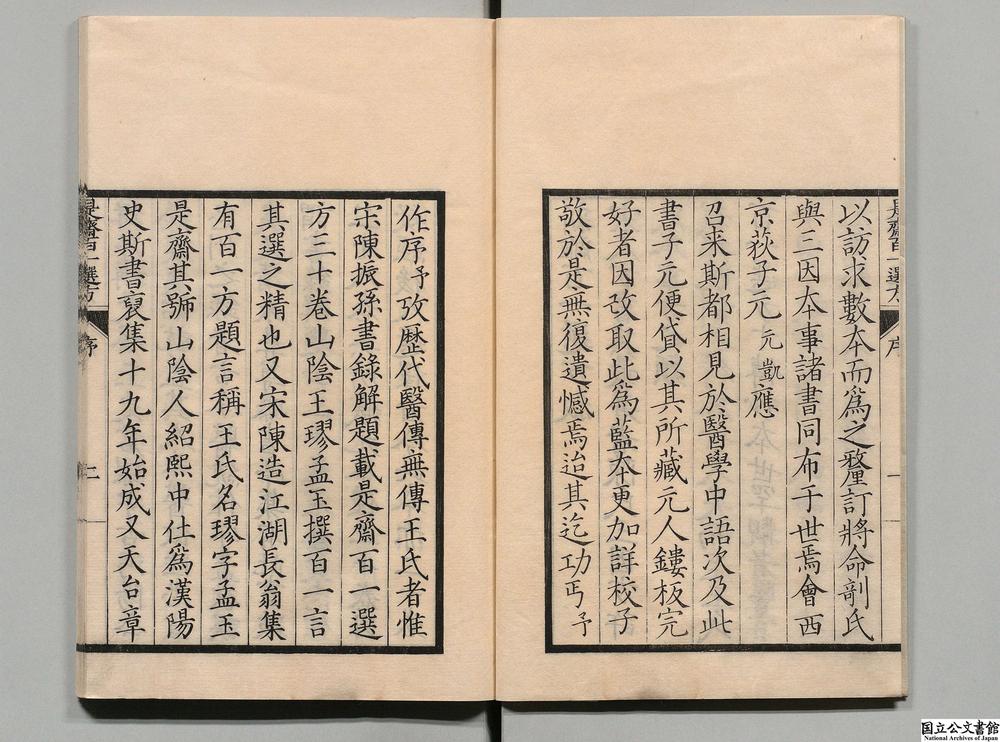 以訪求數本而爲之釐訂將命剞氏
與三因本事諸書同布于世焉會西
京荻子元元凱應
召來斯都相見於醫學中語次及此
書子元便貸以其所藏元人鏤板完
好者因改取此爲藍本更加詳校子
敬於是無復遺憾焉迨其迄功丐予
作序予攷歷代醫傳無傳王氏者惟
宋陳振孫書錄解題載是齋百一選
方三十卷山陰王璆孟玉撰百一言
其選之精也又宋陳造江湖長翁集
有百一方題言稱王氏名璆字孟玉
是齋其號山陰人紹熙中仕爲漢陽
史斯書裒集十九年始成又天台章
是齋百一選方
序
一
是齋百一選方
序
二
国立公文書館
National Archives of Japan